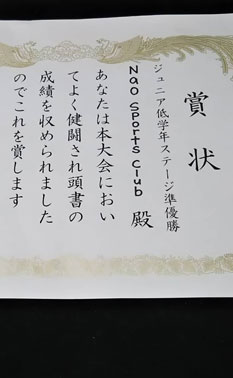 賞状
ジュニア低学年ステージ準優勝
Nao Sports Club 殿
あなたは本大会におい
てよく健闘され頭書の
成績を収められました
のでこれを賞します